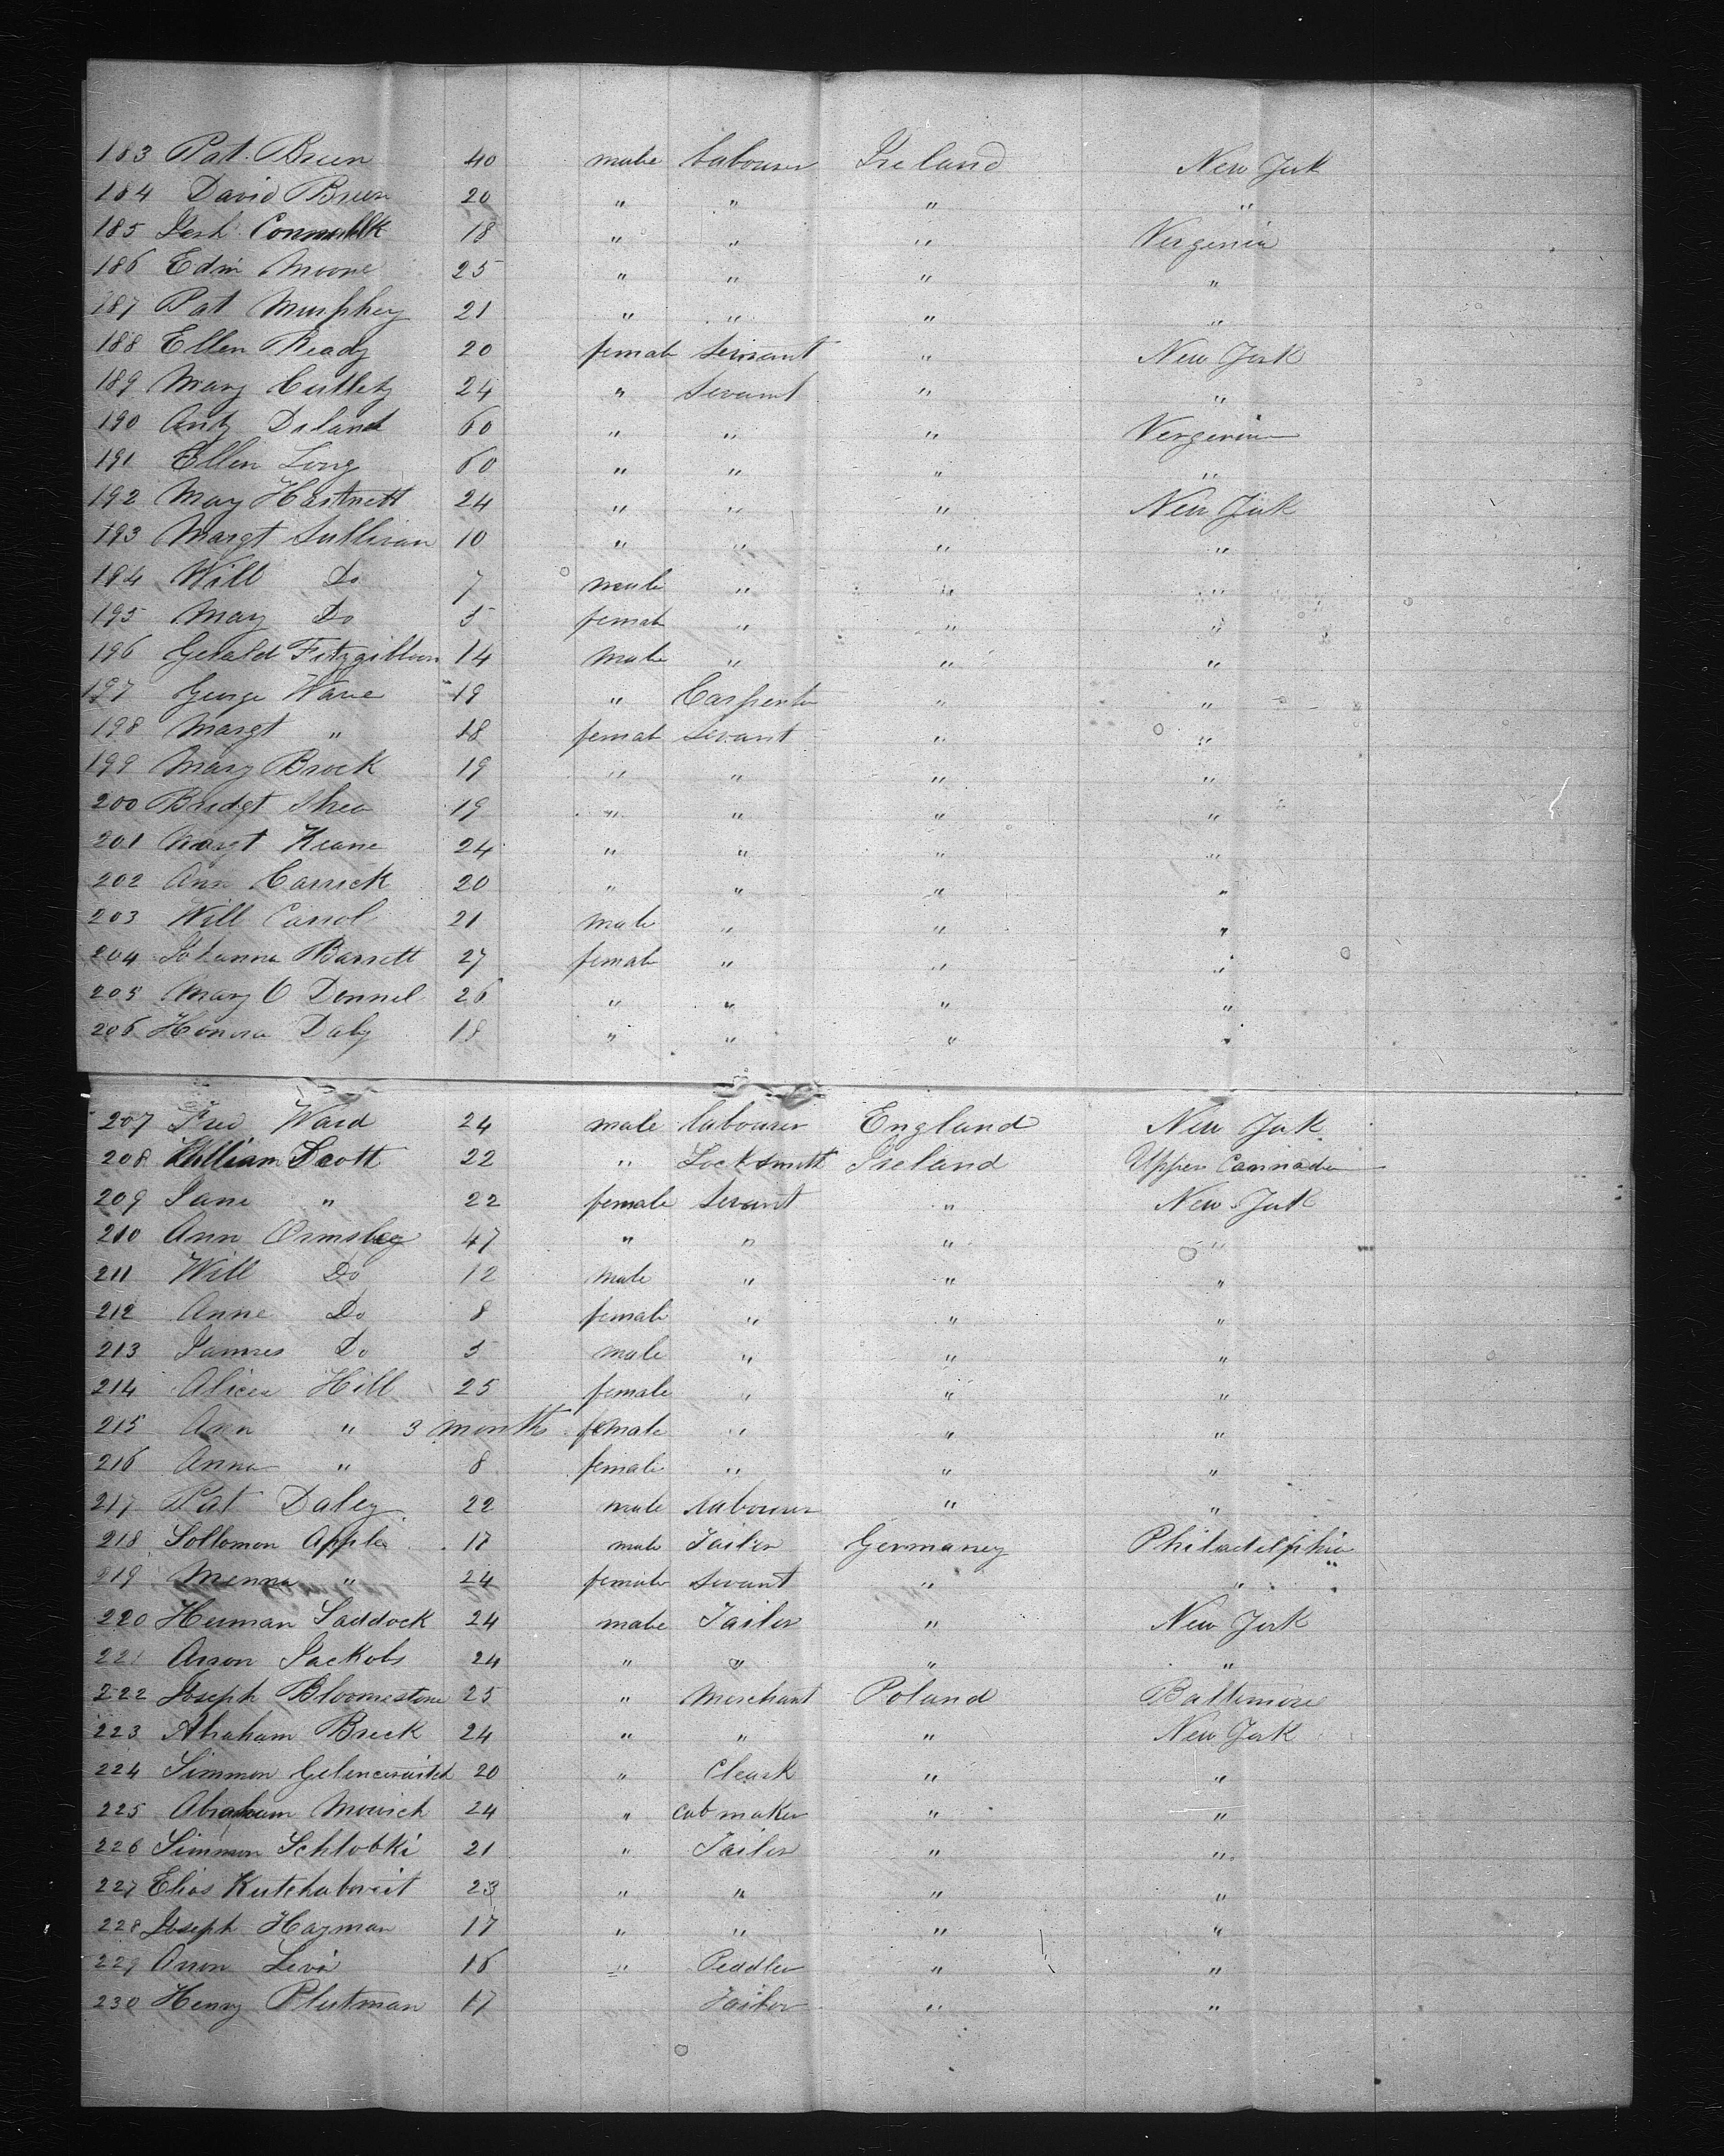 183 Pat. Breen 40 male Labourer Ireland New York
184 David Breen 20 " " " "
185 18 " " " Vergenia
186 Edm Moone 25 " " " "
187 Pat Murphey 21 " " " "
188 Ellen Ready 20 female Servant " New York
189 Mary 24 " Servant " "
190 60 " " " Vergenia
191 Ellen Long 60 " " " "
192 May Hartnett 24 " " " New York
193 Margt Sullivan 10 " " " "
194 Will Do 7 male " " "
195 May Do 5 female " " "
196 Gerald Fitzgibbon 14 male " " "
197 George Ware 19 " Carpenter " "
198 Margt " 18 female Servant " "
199 Mary Brock 19 " " " "
200 Bridgt Shea 19 " " " "
201 Margt Keane 24 " " " "
202 Ann Carrick 20 " " " "
203 Will Carrol 21 male " " "
204 Johanna Barrett 27 female " " "
205 Mary O Donnel 26 " " " "
206 Honora Daly 18 " " " "
207 Fred Ward 24 male Labourer England New York
208 William Scott 22 " Locksmith Ireland Upper Cannada
209 Jane " 22 female Servant " New York
210 Ann Ormsbey 47 " " " "
211 Will Do 12 male " " "
212 Anne Do 8 female " " "
213 James Do 5 male " " "
214 Alicea Hill 25 female " " "
215 Ann " 3 months female " " "
216 Anna " 8 female " " "
217 Pat Daley 22 male Labourer " "
218 Sollomon Appla 17 male Tailor Germaney Philadelphia
219 Menna " 24 female Servant " "
220 Herman Saddock 24 male Tailor " New York
221 Arron Jackobs 24 " " " "
222 Joseph Bloomestone 25 " Merchant Poland Baltimore
223 Abraham Breck 24 " " " New York
224 Simmon 20 " Cleark " "
225 Abraham Mowich 24 " cabmaker " "
226 Simmon Schlobki 21 " Tailor " "
227 Elias 23 " " " "
228 Joseph Hazman 17 " " " "
229 Arron Levi 16 " Peddler " "
230 Henry Plutman 17 Tailor " "